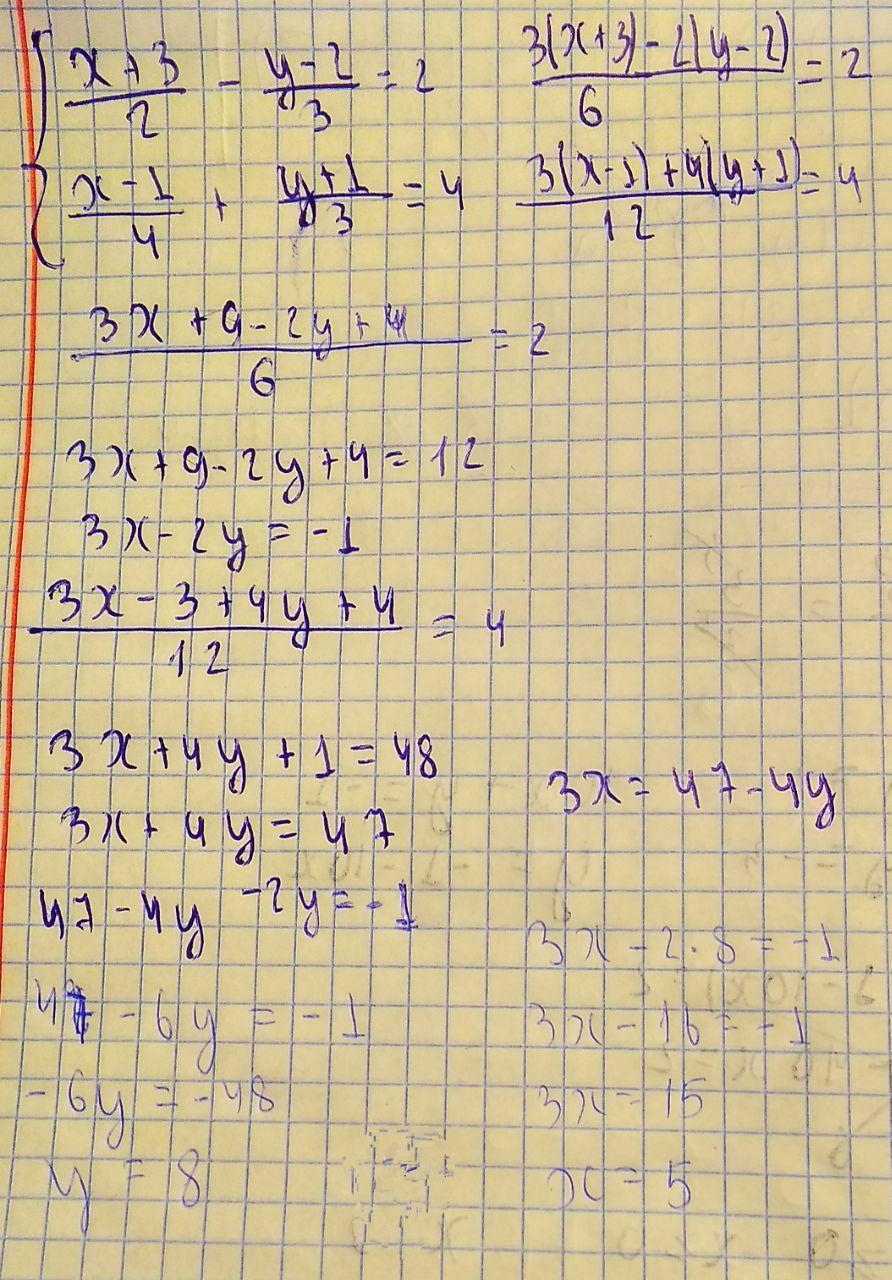 { (x+3)/2 - (y-2)/3 = 2
(3(x+3)-2(y-2))/6 = 2
(x-1)/4 + (y+1)/3 = 4
(3(x-1)+4(y+1))/12 = 4
(3x+9-2y+4)/6 = 2
3x+9-2y+4=12
3x-2y=-1
(3x-3+4y+4)/12 = 4
3x+4y+1=48
3x=47-4y
3x+4y=47
47-4y-2y=-1
47-6y=-1
-6y=-48
y=8
3x-2·8=-1
3x-16=-1
3x=15
x=5